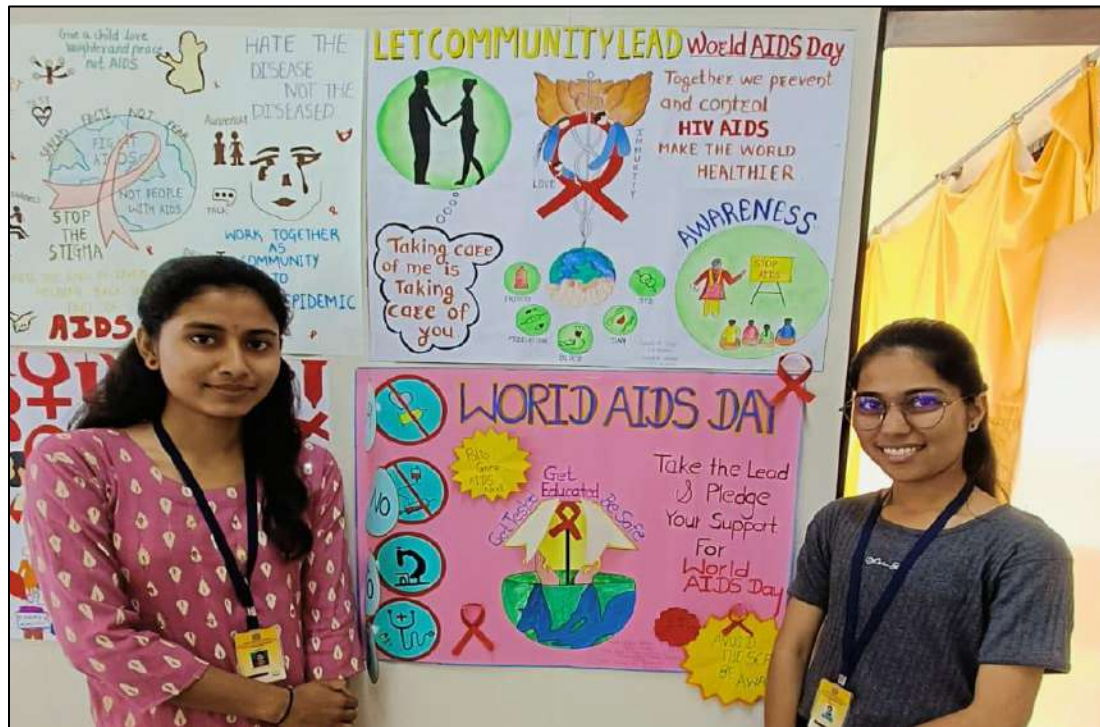 Give a child love
laughter and peace
not AIDS
HATE THE
DISEASE
NOT THE
DISEASED
TEST
SPREAD FACTS NOT FEAR
FIGHT
AIDS
NOT PEOPLE
WITH AIDS
Awareness
TALK
STOP
THE
STIGMA
WORK TOGETHER
AS
COMMUNITY
TO
EPIDEMIC
AIDS
LET COMMUNITY LEAD
World AIDS Day
Together we prevent
and control
HIV AIDS
MAKE THE WORLD
HEALTHIER
LOVE
IMMUNITY
Taking care
of me is
Taking
care of
you
AWARENESS
STOP
AIDS
WORLD AIDS DAY
Get Tested
Get
Educated
Be Safe
Take the Lead
& Pledge
Your Support
For
World
AIDS Day
AVOID
THE
BE